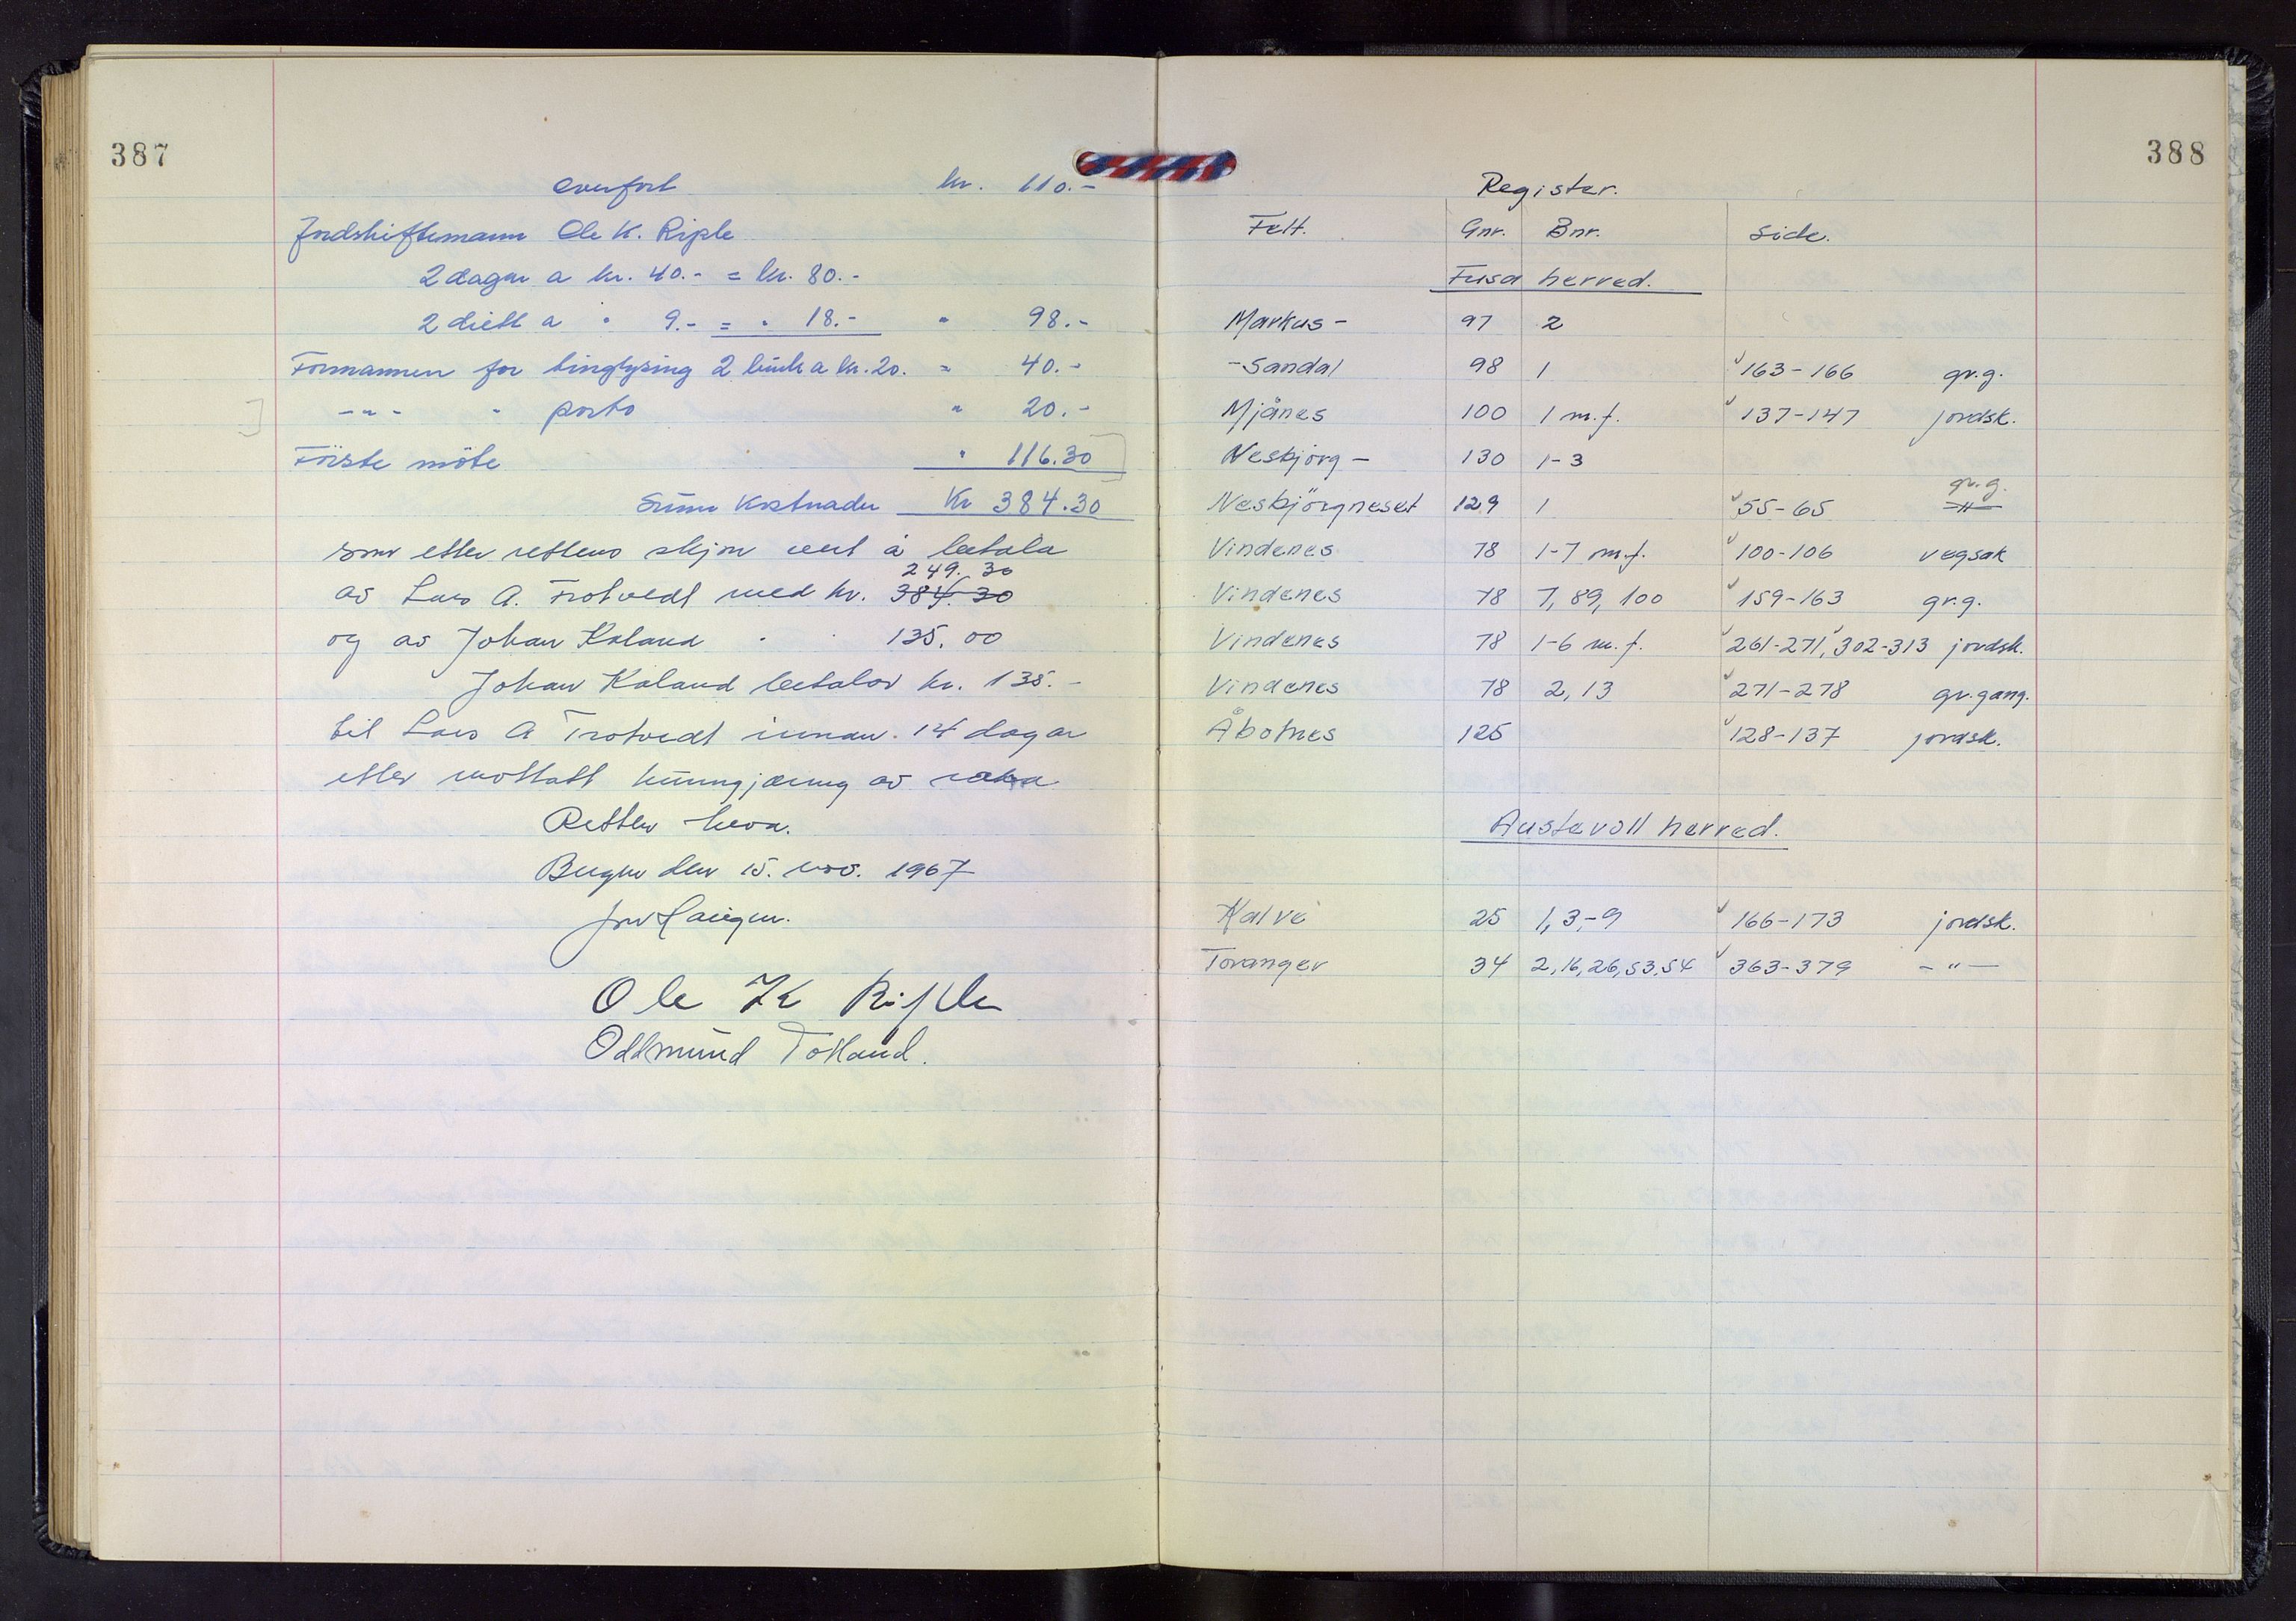 387
overført kr. 110.-
Jordskiftemann Ole K. Riple
2 dagar a kr. 40.- = kr. 80.-
2 diett a " 9.- = " 18.- " 98.-
Formannen for tinglysing 2 bruk a kr. 20. = 40.-
-"- " porto " 20.-
Förste möte " 116.30
Sum kostnader Kr 384.30
som etter rettens skjön vert å betala
249.30
av Lars A. Trotvedt med kr. 384.30
og av Johan Kaland " " 135.00
Johan Kaland betalar kr. 135.-
til Lars A Trotvedt innan 14 dagar
etter mottatt kunngjæring av saka
Retten heva.
Bergen den 15. nov. 1967
Ole K Riple
Oddmund Tolland.
388
Register.
Felt. Gnr. Bnr. Side.
Fusa herred.
Markus- 97 2
-Sandal 98 1 163-166 gr.g.
Mjånes 100 1 m.f. 137-147 jordsk.
Nesbjörg- 130 1-3
gr.g.
Nesbjörgneset 129 1 55-65 -"-
Vindenes 78 1-7 m.f. 100-106 vegsak
Vindenes 78 7, 89, 100 159-163 gr.g.
Vindenes 78 1-6 m.f. 261-271, 302-313 jordsk.
Vindenes 78 2, 13 271-278 gr.gang.
Åbotnes 125 128-137 jordsk.
Austevoll herred.
Kalve 25 1, 3,-9 166-173 jordsk.
Toranger 34 2, 16, 26, 53, 54 363-379 -"-